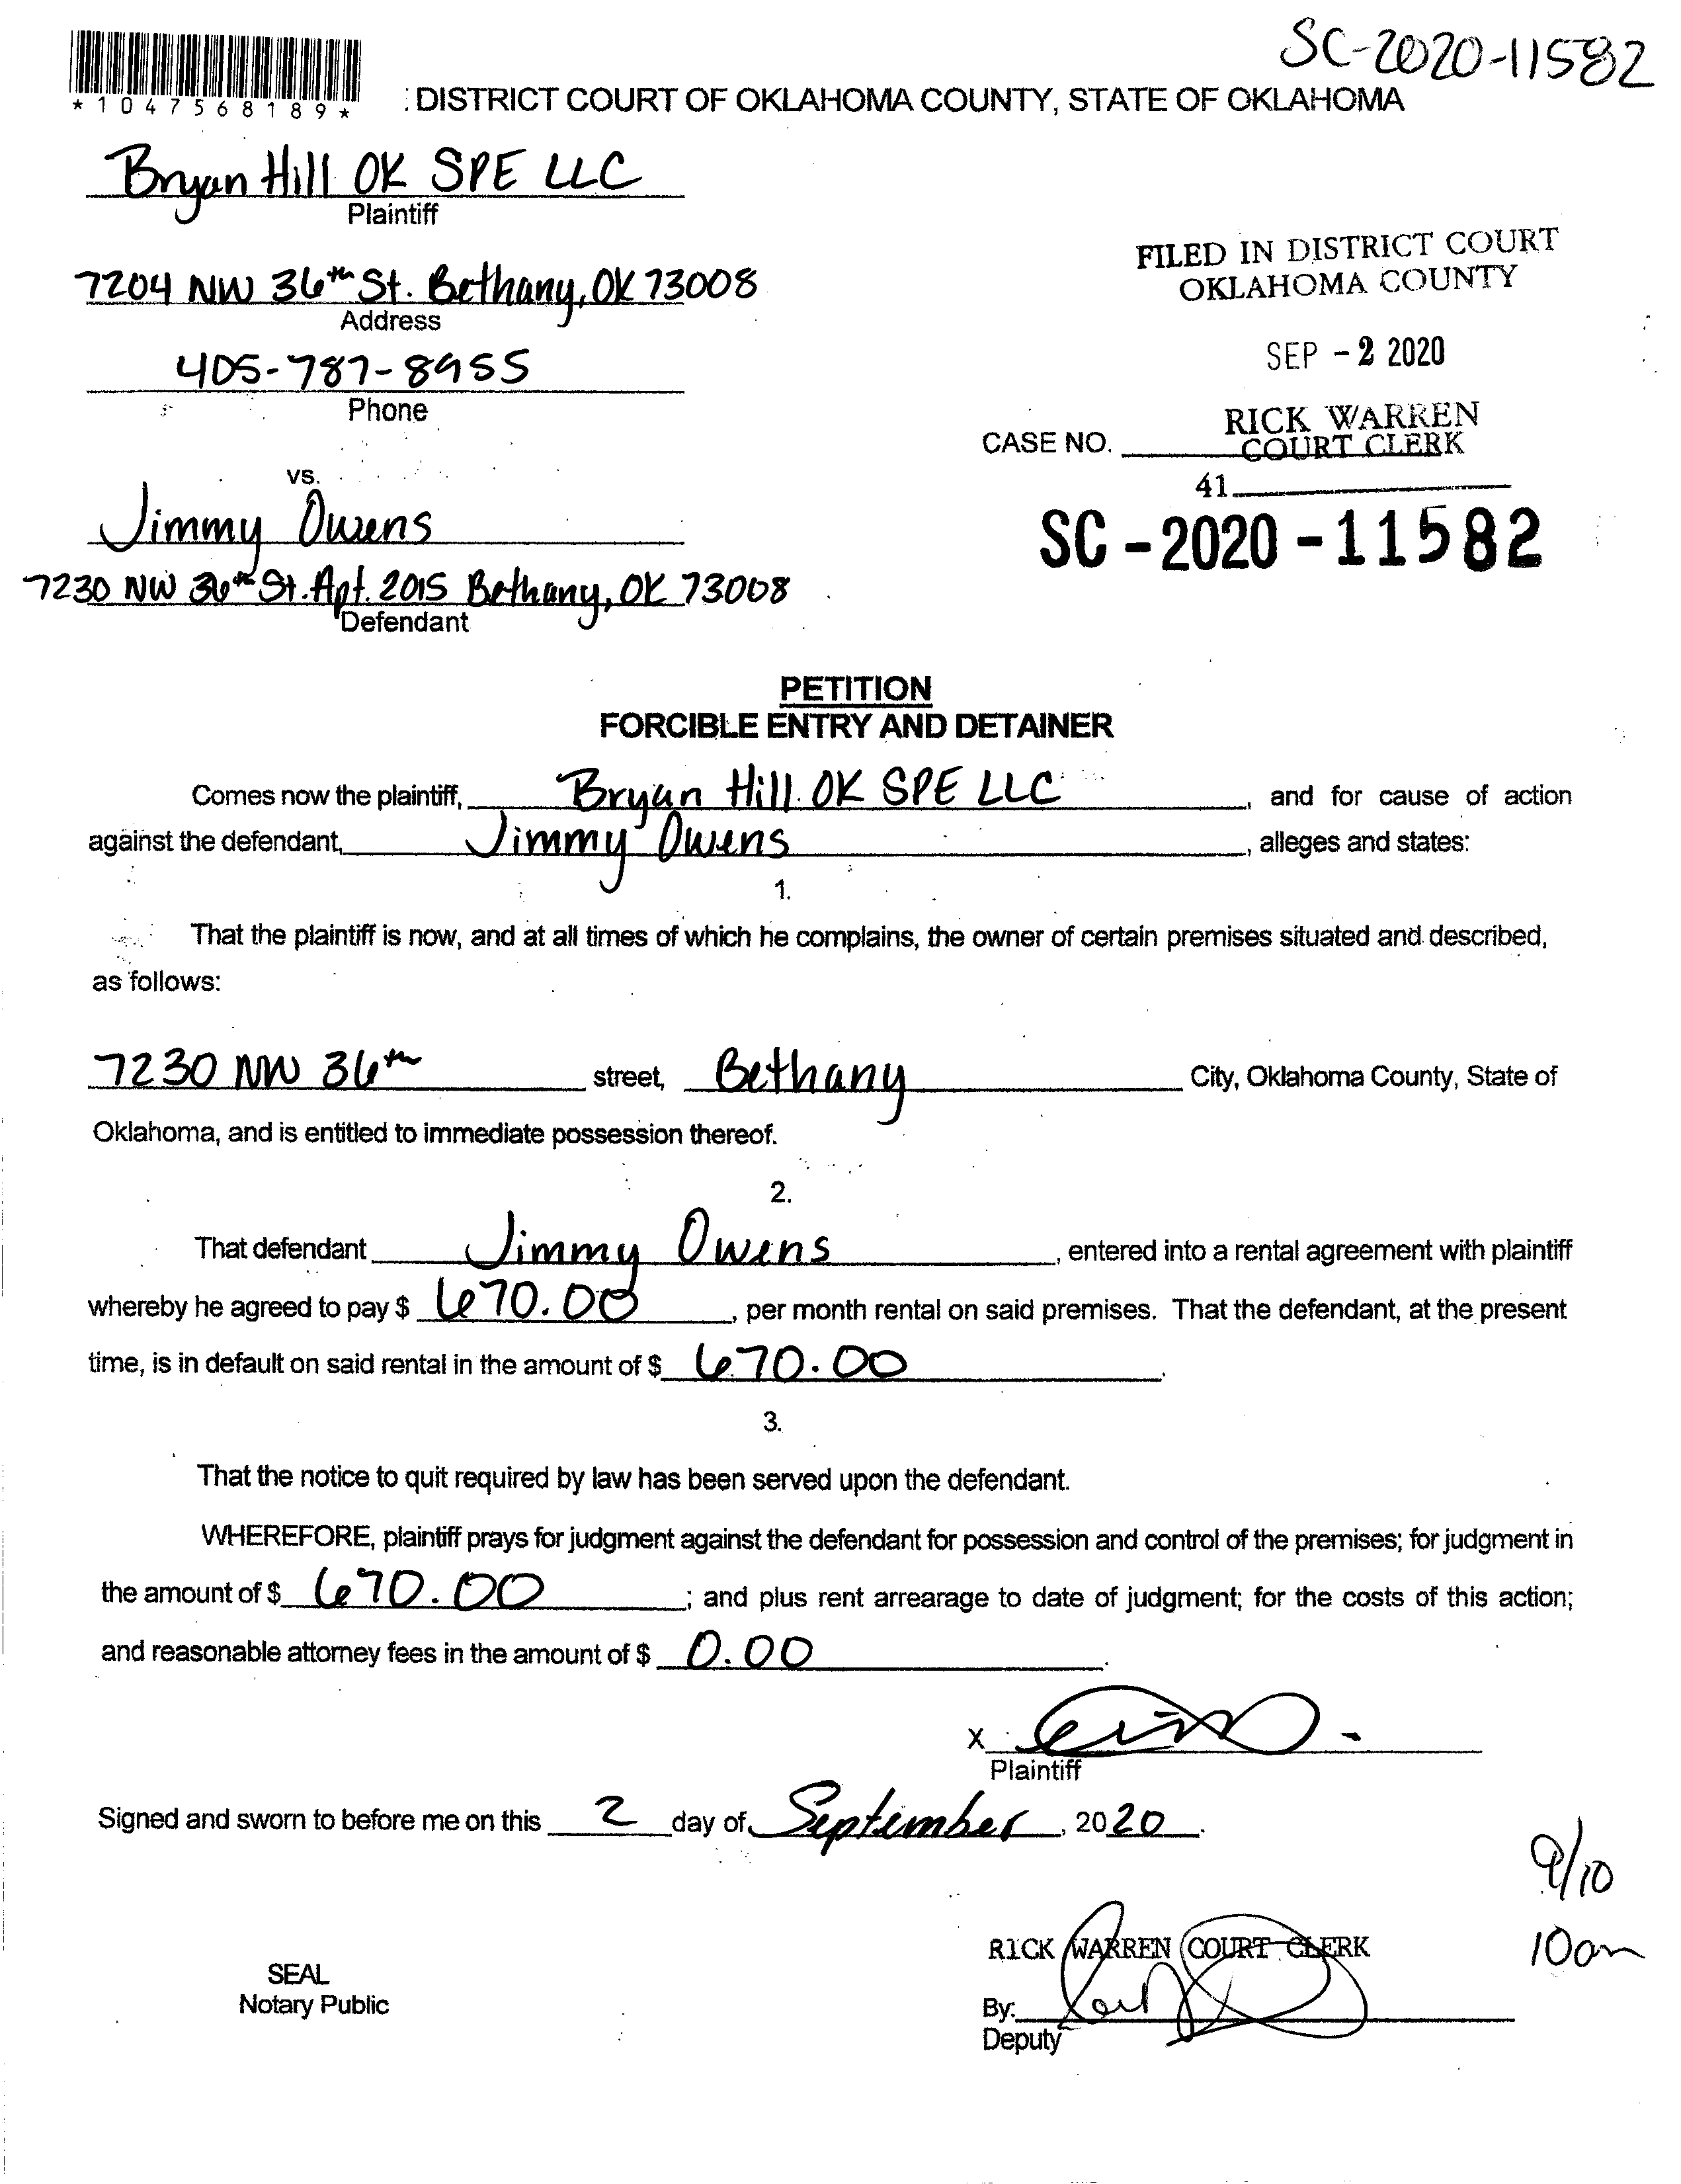 SC-2020-11582
*1047568189*
: DISTRICT COURT OF OKLAHOMA COUNTY, STATE OF OKLAHOMA
Bryan Hill OK SPE LLC
Plaintiff
7204 NW 36th St. Bethany, OK 73008
Address
405-787-8955
Phone
FILED IN DISTRICT COURT
OKLAHOMA COUNTY
SEP - 2 2020
RICK WARREN
COURT CLERK
CASE NO.
41
SC-2020-11582
vs.
Jimmy Owens
7230 NW 36th St. Apt. 2015 Bethany, OK 73008
Defendant
PETITION
FORCIBLE ENTRY AND DETAINER
Comes now the plaintiff, Bryan Hill OK SPE LLC, and for cause of action
against the defendant, Jimmy Owens, alleges and states:
1.
That the plaintiff is now, and at all times of which he complains, the owner of certain premises situated and described,
as follows:
7230 NW 36th street, Bethany City, Oklahoma County, State of
Oklahoma, and is entitled to immediate possession thereof.
2.
That defendant Jimmy Owens, entered into a rental agreement with plaintiff
whereby he agreed to pay $ 670.00, per month rental on said premises. That the defendant, at the present
time, is in default on said rental in the amount of $ 670.00.
3.
That the notice to quit required by law has been served upon the defendant.
WHEREFORE, plaintiff prays for judgment against the defendant for possession and control of the premises; for judgment in
the amount of $ 670.00; and plus rent arrearage to date of judgment; for the costs of this action;
and reasonable attorney fees in the amount of $ 0.00.
X
Plaintiff
Signed and sworn to before me on this 2 day of September, 2020.
9/10
10am
RICK WARREN COURT CLERK
SEAL
Notary Public
By:
Deputy